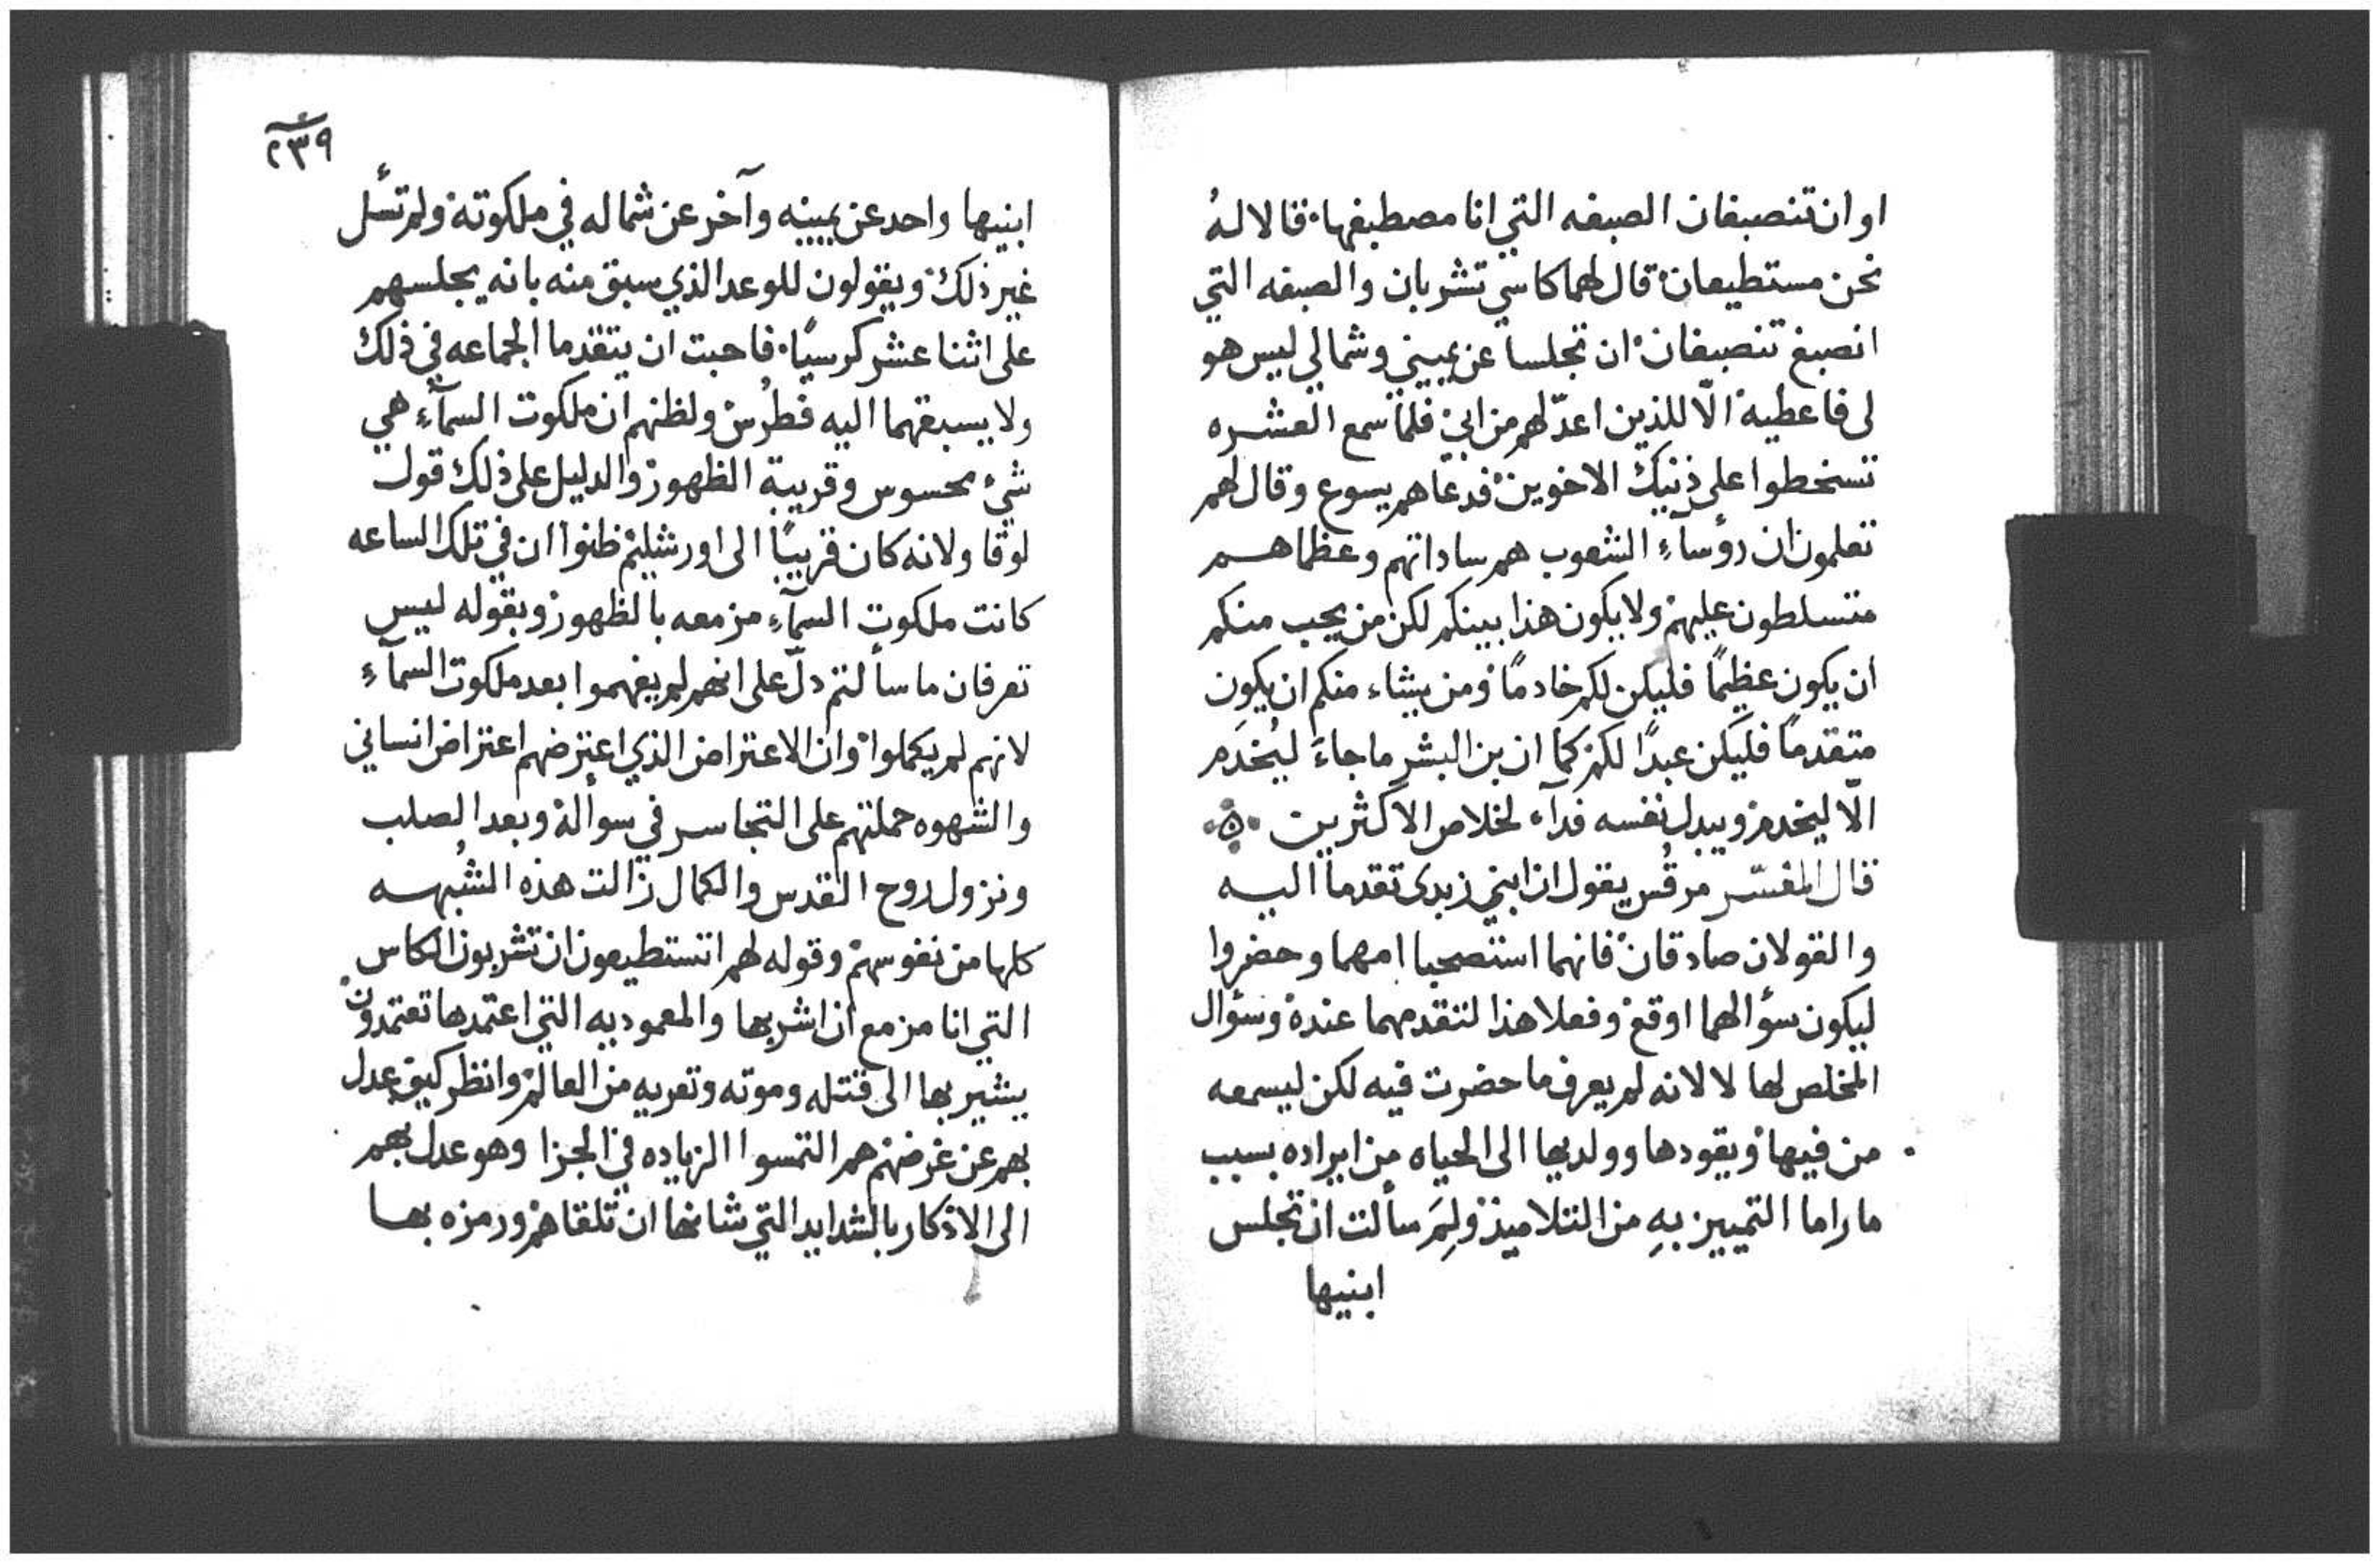 او ان تنصبغان الصبغه التي انا مصطبغها. قالا لهُ
نحن مستطيعان. قال لهما كاسي تشربان والصبغه التي
انصبغ تنصبغان. ان تجلسا عن يميني وشمالي ليس هو
لى فاعطيه. الّا للذين اعدّ لهم من ابي. فلما سمع العشره
تسخطوا على ذنيك الاخوين. فدعاهم يسوع وقال لهم
تعلمون ان رؤسآءِ الشعوب هم ساداتهم وعظماهم
متسلطون عليهم. ولا يكون هذا بينكم لكن من يحب منكم
ان يكون عظيمًا فليكن لكم خادمًا. ومن يشاء منكم ان يكون
متقدمًا فليكن عبدًا لكم. كما ان بن البشر ما جاءَ ليُخدَم
الّا ليخدم. ويبدل نفسه فدآء لخلاص الاكثرين .ه.
قال المفسّر مرقُس يقول ان ابني زبدى تقدما اليه
والقولان صادقان. فانهما استصحبا امهما وحضروا
ليكون سؤالهما اوقع. وفعلا هذا لتقدمهما عنده. وسؤال
المخلص لها لا لانه لم يعرف ما حضرت فيه لكن ليسمعه
من فيها. ويقودها وولديها الى الحياه من ايراده بسبب
ما راما التمييز بهِ من التلاميذ. ولِمَ سألت ان تجلس
ابنيها
٢٣٩
ابنيها واحد عن يمينه وآخر عن شماله في ملكوته. ولم تسأل
غير ذلك. ويقولون للوعد الذي سبق منه بانه يجلسهم
على اثنا عشر كرسيًا. فاحبت ان يتقدما الجماعه في ذلك
ولا يسبقهما اليه فطرُس. ولظنهم ان ملكوت السمآءِ هي
شيء محسوس وقريبة الظهور. والدليل على ذلك قول
لوقا ولانه كان قريبًا الى اورشليم. ظنوا ان في تلك الساعه
كانت ملكوت السمآءِ مزمعه بالظهور. وبقوله ليس
تعرفان ما سألتم دلّ على انهم لم يفهموا بعد ملكوت السمآءِ
لانهم لم يكملوا. وان الاعتراض الذي اعترضهم اعتراض انساني
والشهوه حملتهم على التجاسر في سوأله. وبعد الصلب
ونزول روح القدس والكمال زالت هذه الشُبهه
كلها من نفوسهم. وقوله لهم اتستطيعون ان تشربون الكاس
التي انا مزمع ان اشربها والمعموديه التي اعتمدها تعتمدون.
يشير بها الى قتله وموته وتعريه من العالم. وانظر كيف عدل
بهم عن غرضهم. هم التمسوا الزياده في الجزا وهو عدل بهم
الى الاذكار بالشدايد التي شانها ان تلقاهم. ورمزه بها